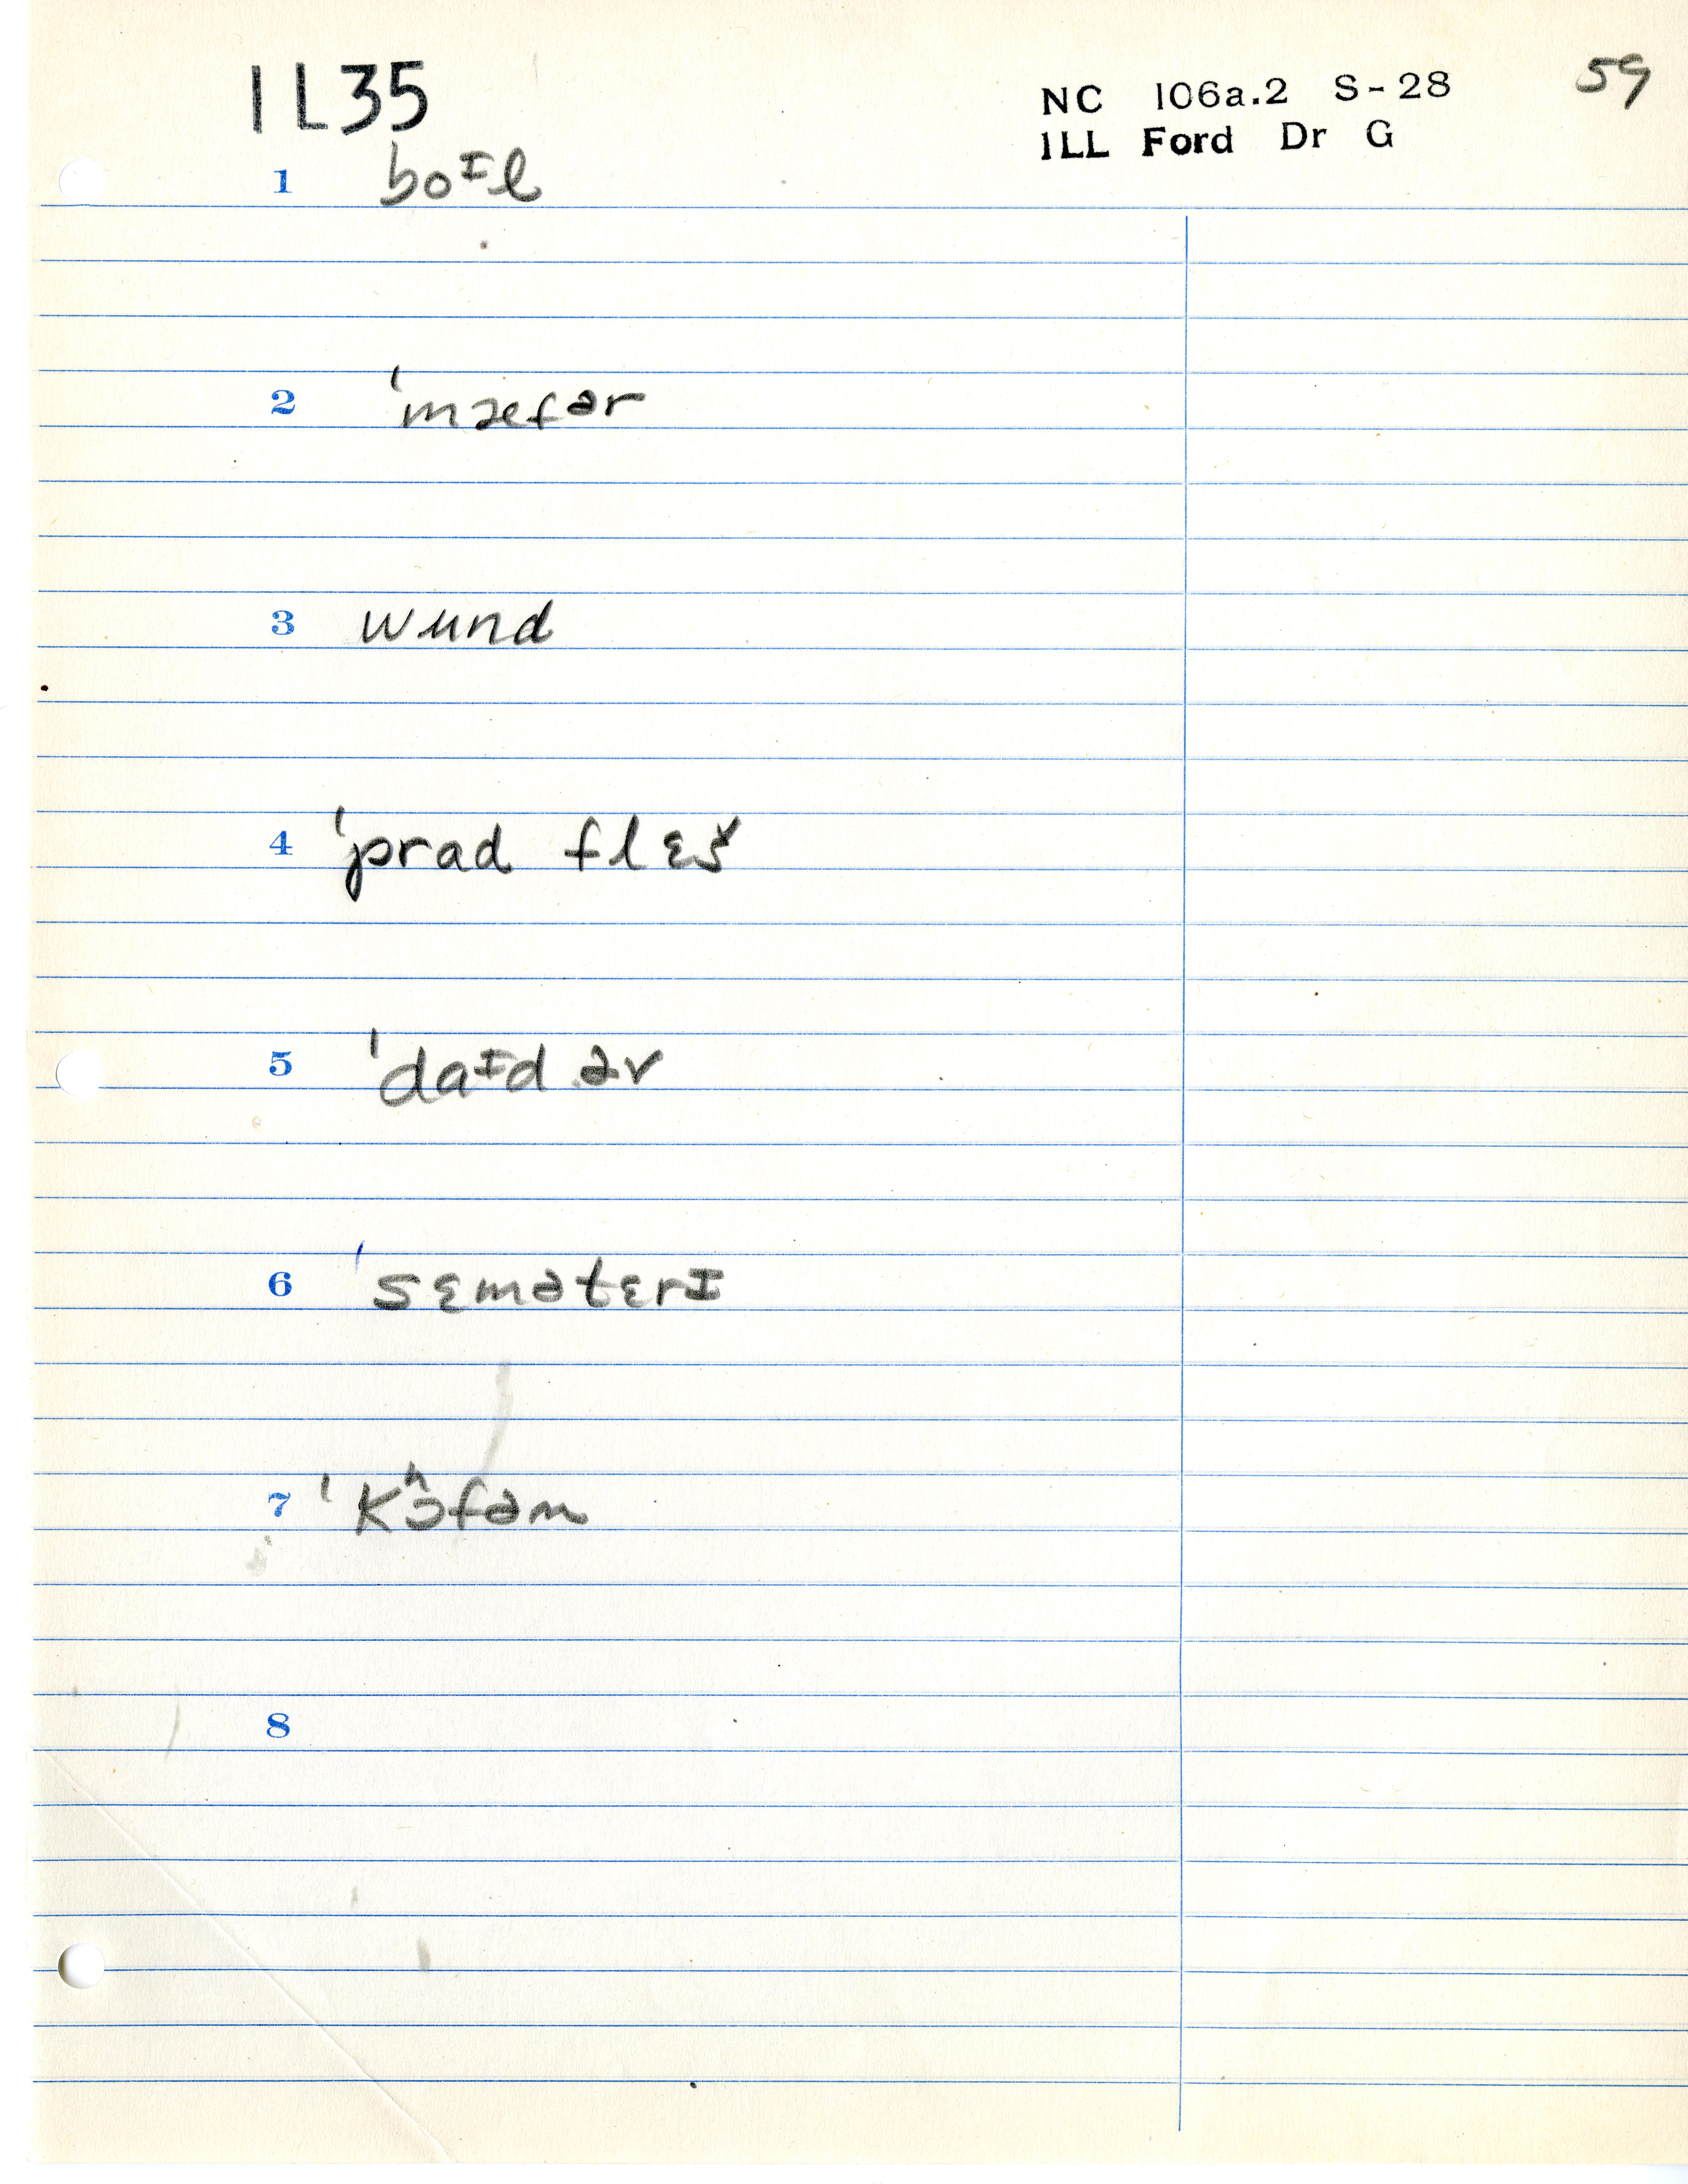 IL35
NC 106a.2 S-28
ILL Ford Dr G
59
1 boᶦl
2 ˈmæfər
3 wund
4 ˈprad flɛš
5 ˈdaᶦdər
6 ˈsɛmətɛrɪ
7 ˈkʰɔfən
8